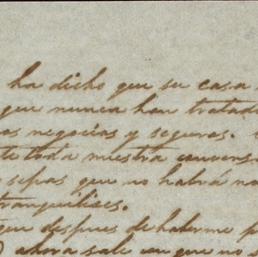 ha dicho que su casa
que nunca han tratado
as negocias y seguras.
te toda nuestra conversa
sepas que no habrá no
tranquilices.
que despues de haberme p
ahora sale con que no